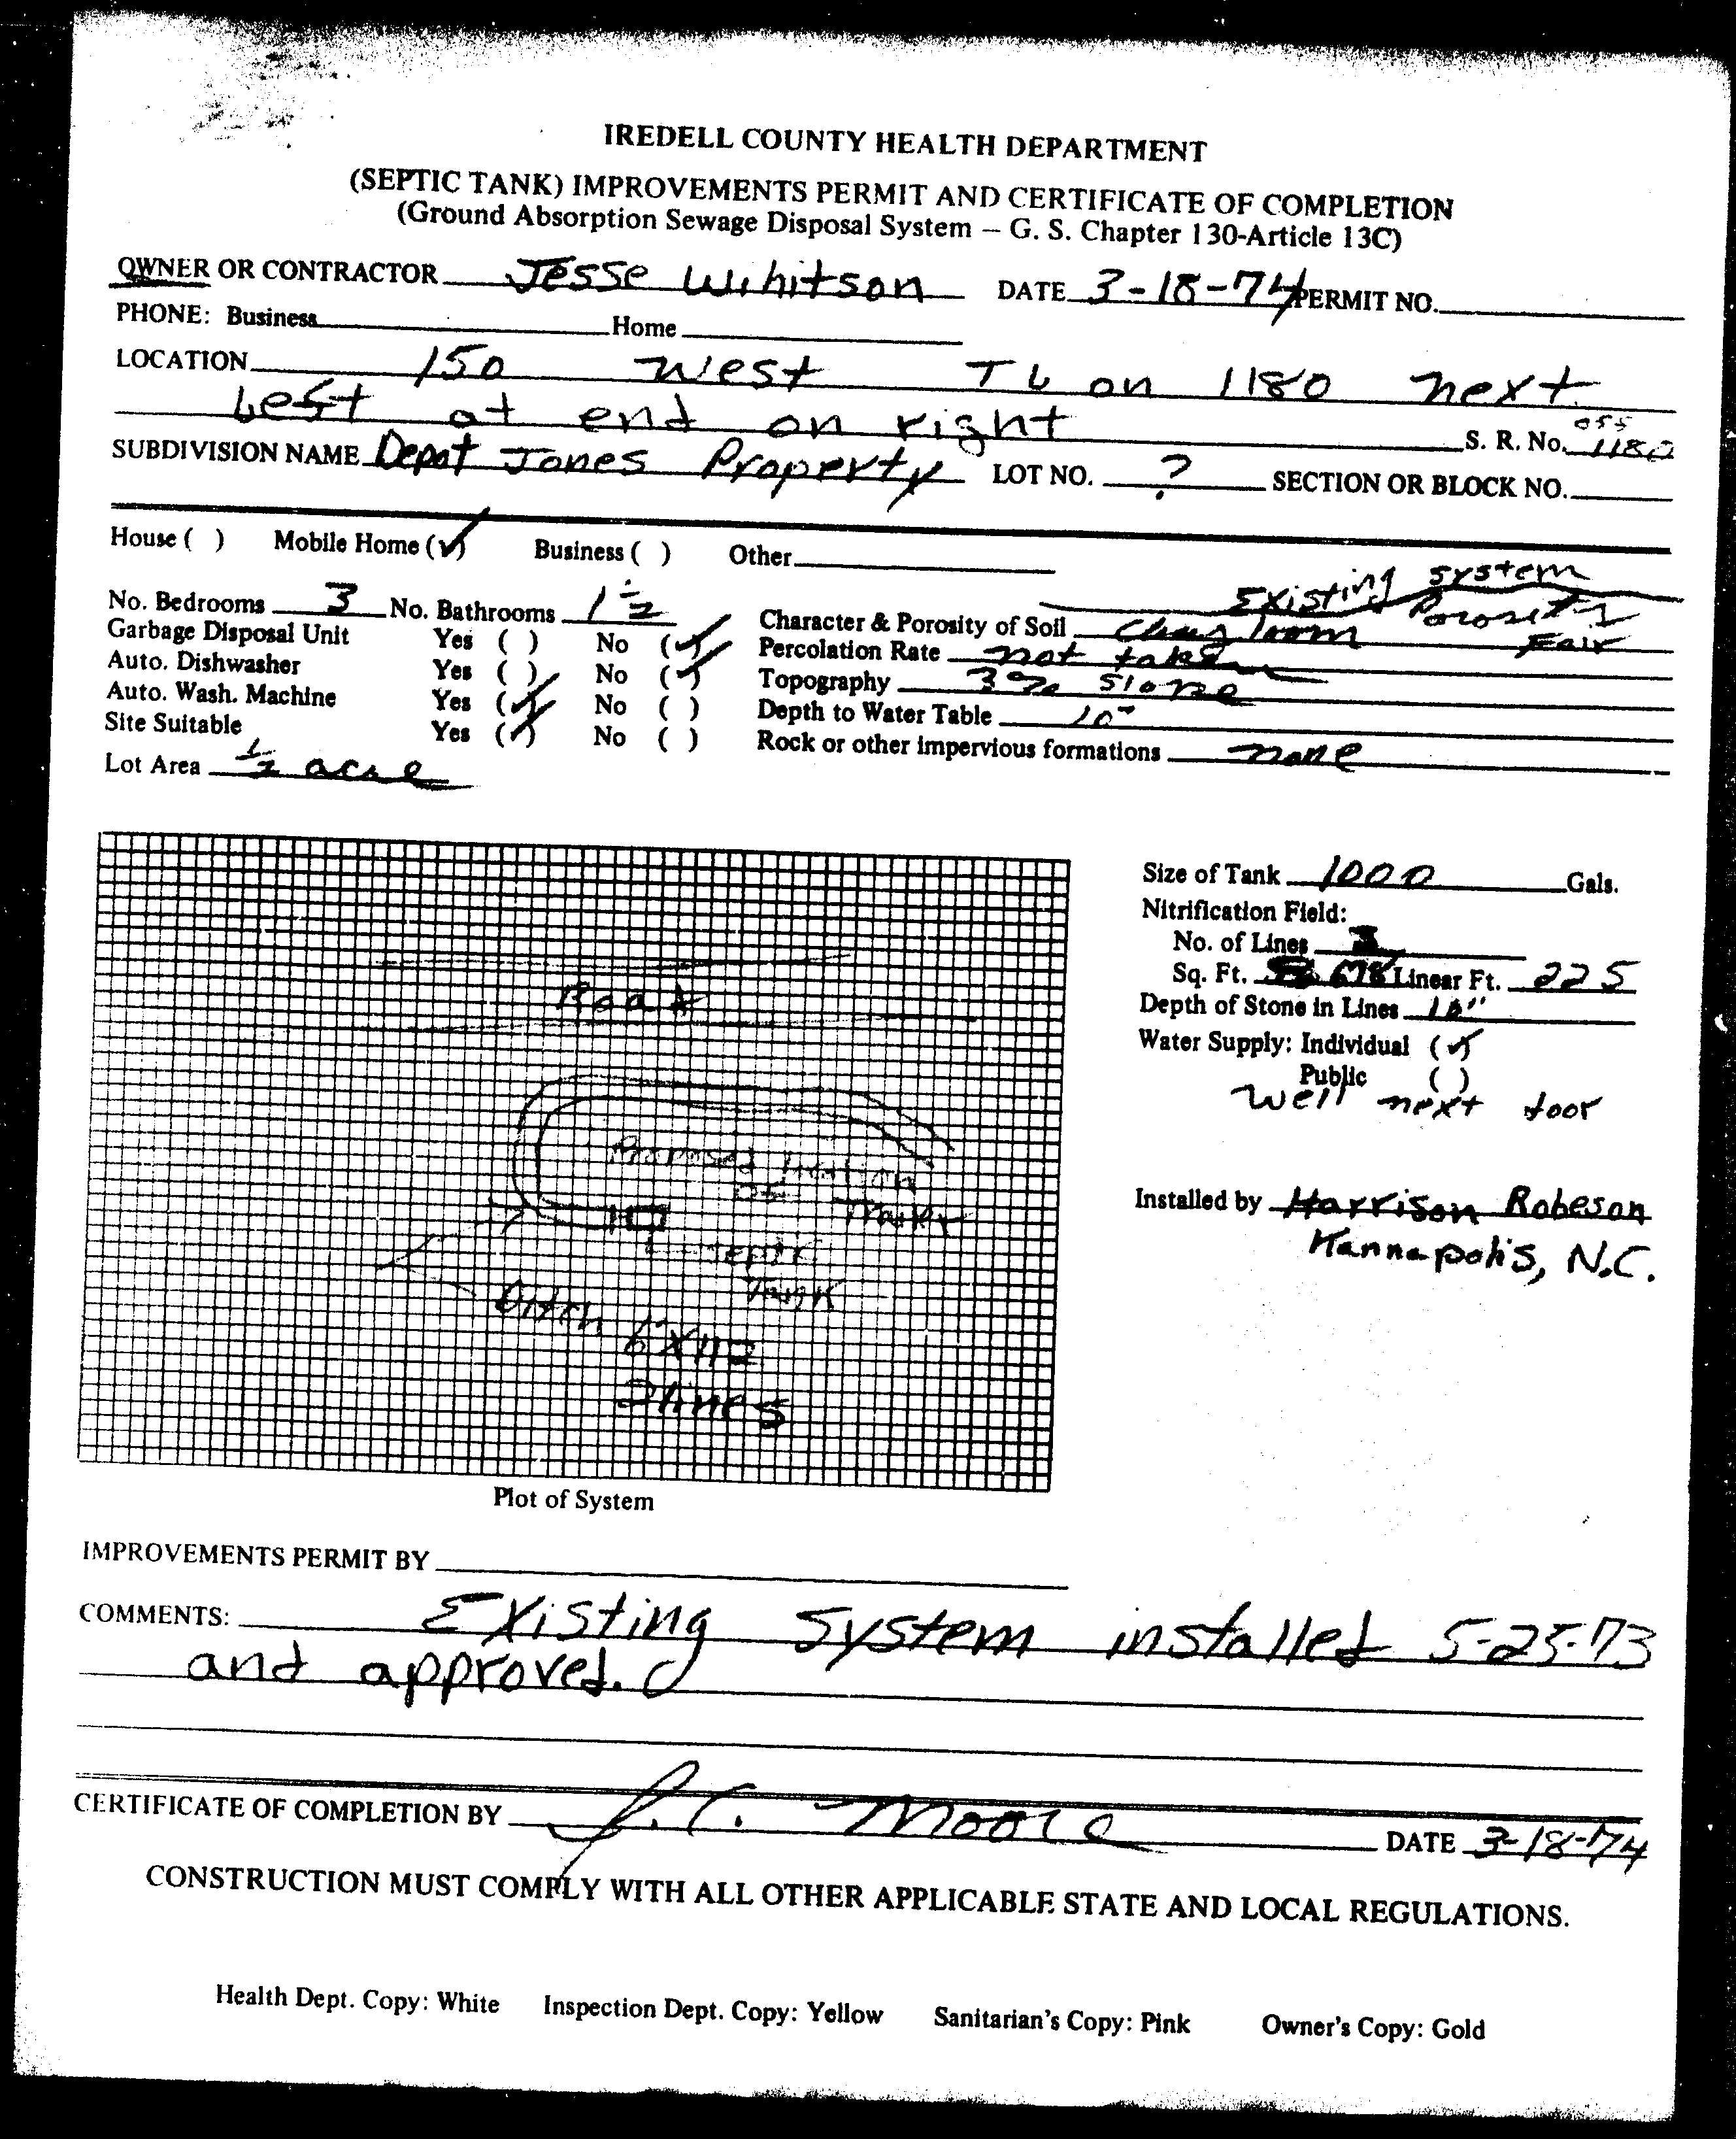 IREDELL COUNTY HEALTH DEPARTMENT
(SEPTIC TANK) IMPROVEMENTS PERMIT AND CERTIFICATE OF COMPLETION
(Ground Absorption Sewage Disposal System – G. S. Chapter 130-Article 13C)
OWNER OR CONTRACTOR Jesse Wihitson DATE 3-18-74 PERMIT NO.
PHONE: Business Home
LOCATION 150 West TL on 1180 next
Left at end on right off
S. R. No. 1180
SUBDIVISION NAME Depot Jones Property LOT NO. ? SECTION OR BLOCK NO.
House ( ) Mobile Home (✓) Business ( ) Other
Existing system
No. Bedrooms 3 No. Bathrooms 1 1/2
Character & Porosity of Soil Clay loam Porosity Fair
Garbage Disposal Unit Yes ( ) No (✓)
Percolation Rate not taken
Auto. Dishwasher Yes ( ) No (✓)
Topography 3% slope
Auto. Wash. Machine Yes (✓) No ( )
Depth to Water Table 10
Site Suitable Yes (✓) No ( )
Rock or other impervious formations none
Lot Area 1/2 acre
Size of Tank 1000 Gals.
Nitrification Field:
No. of Lines
Sq. Ft. 678 Linear Ft. 225
Depth of Stone in Lines 10"
Water Supply: Individual (✓)
Public ( )
Well next door
Installed by Harrison Robeson
Kannapolis, N.C.
Road
Proposed location
of
Trailer
septic
Tank
Ditch
6'X112
2 lines
Plot of System
IMPROVEMENTS PERMIT BY
COMMENTS: Existing System installed 5-25-73
and approved.
CERTIFICATE OF COMPLETION BY J.C. Moore DATE 3-18-74
CONSTRUCTION MUST COMPLY WITH ALL OTHER APPLICABLE STATE AND LOCAL REGULATIONS.
Health Dept. Copy: White Inspection Dept. Copy: Yellow Sanitarian's Copy: Pink Owner's Copy: Gold